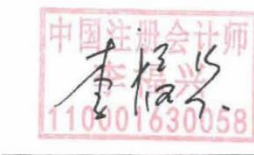 中国注册会计师
李福兴
110001630058